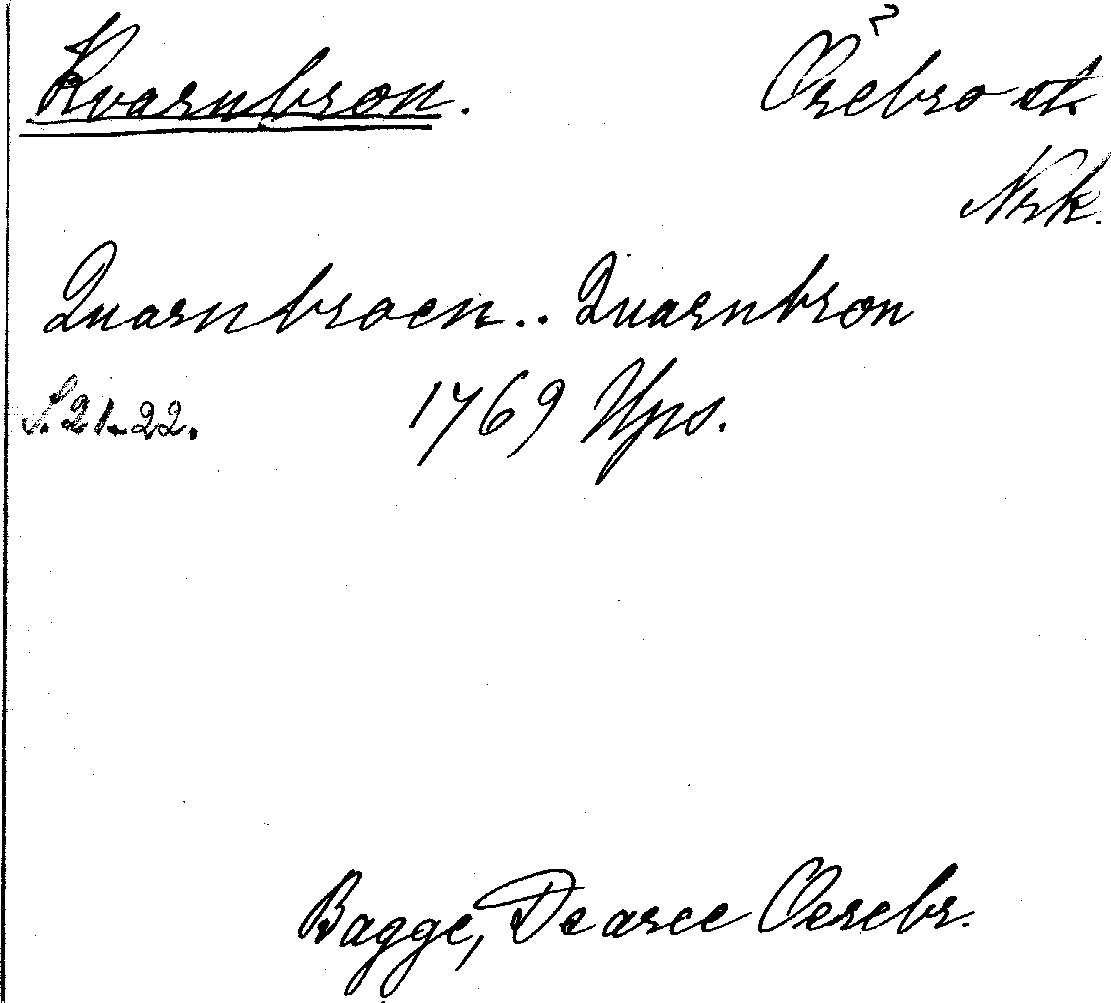 Kvarnbron. Örebro st.
Nrk.
Quarnbroen.. Quarnbron
S. 21-22. 1769 Ups.
Bagge, De arce Oerebr.